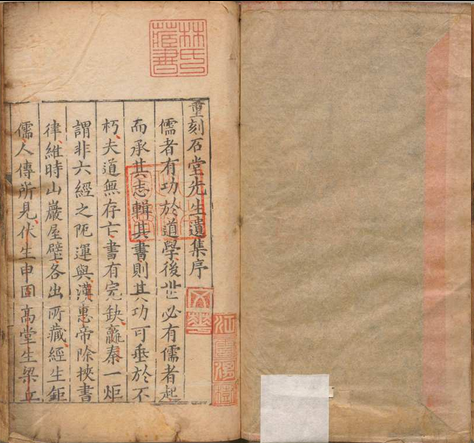 重刻石堂先生遺集序
儒者有功於道學後世必有儒者起
而承其志輯其書則其功可垂於不
朽夫道無存亡書有完缺嬴秦一炬
謂非六經之阨運與漢惠帝除挾書
律維時山巖屋壁各出所藏經生鉅
儒人傳所見伏生申固高堂生梁丘
林氏
藏書